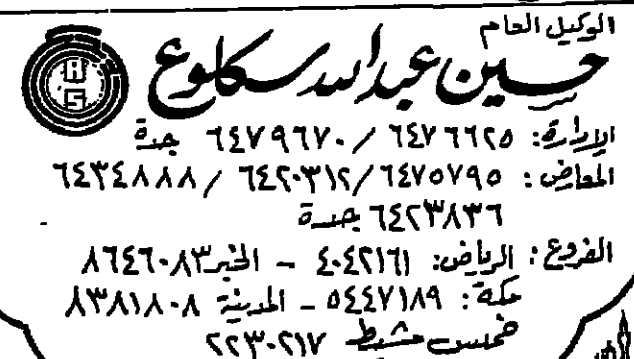 الوكيل العام
حسين عبدالله سكلوع
الإدارة: ٦٤٧٦٦٢٥ / ٦٤٧٩٦٧٠ جدة
المعارض: ٦٤٧٥٧٩٥ / ٦٤٢٠٣١٢ / ٦٤٣٤٨٨٨
٦٤٢٣٨٣٦ جدة
الفروع: الرياض: ٤٠٤٢١٦١ - الخبر ٨٦٤٦٠٨٣
مكة: ٥٤٤٧١٨٩ - المدينة ٨٣٨١٨٠٨
خميس مشيط ٢٢٣٠٢١٧